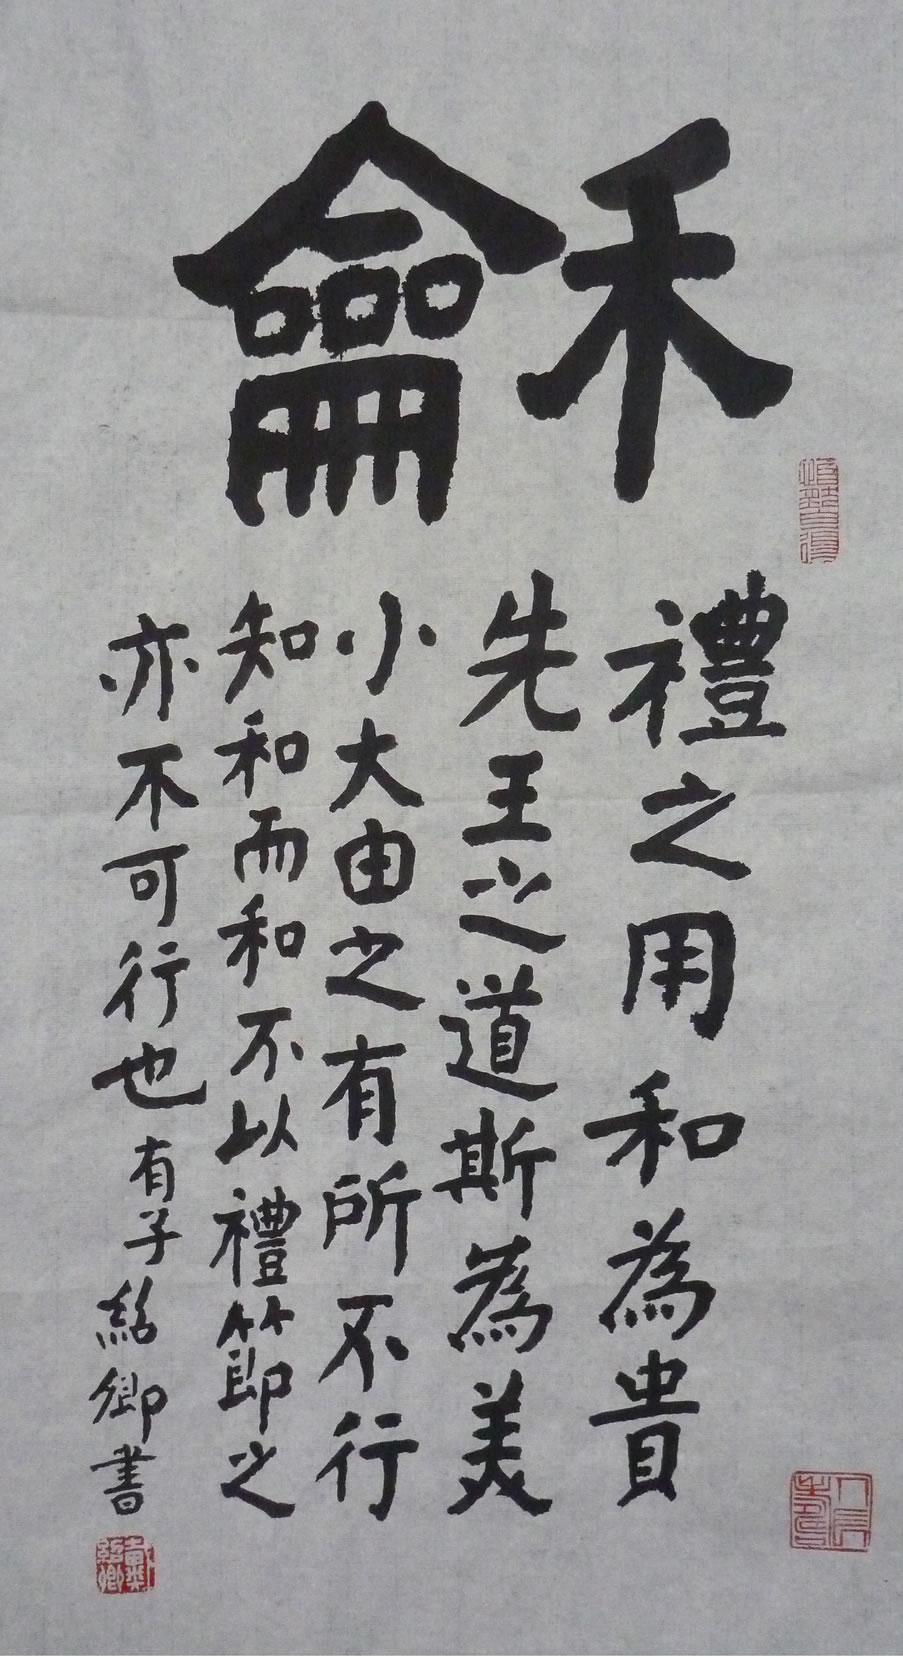 龢
禮之用和為貴
先王之道斯為美
小大由之有所不行
知和而和不以禮節之
亦不可行也 有子 紹卿書
戴紹卿